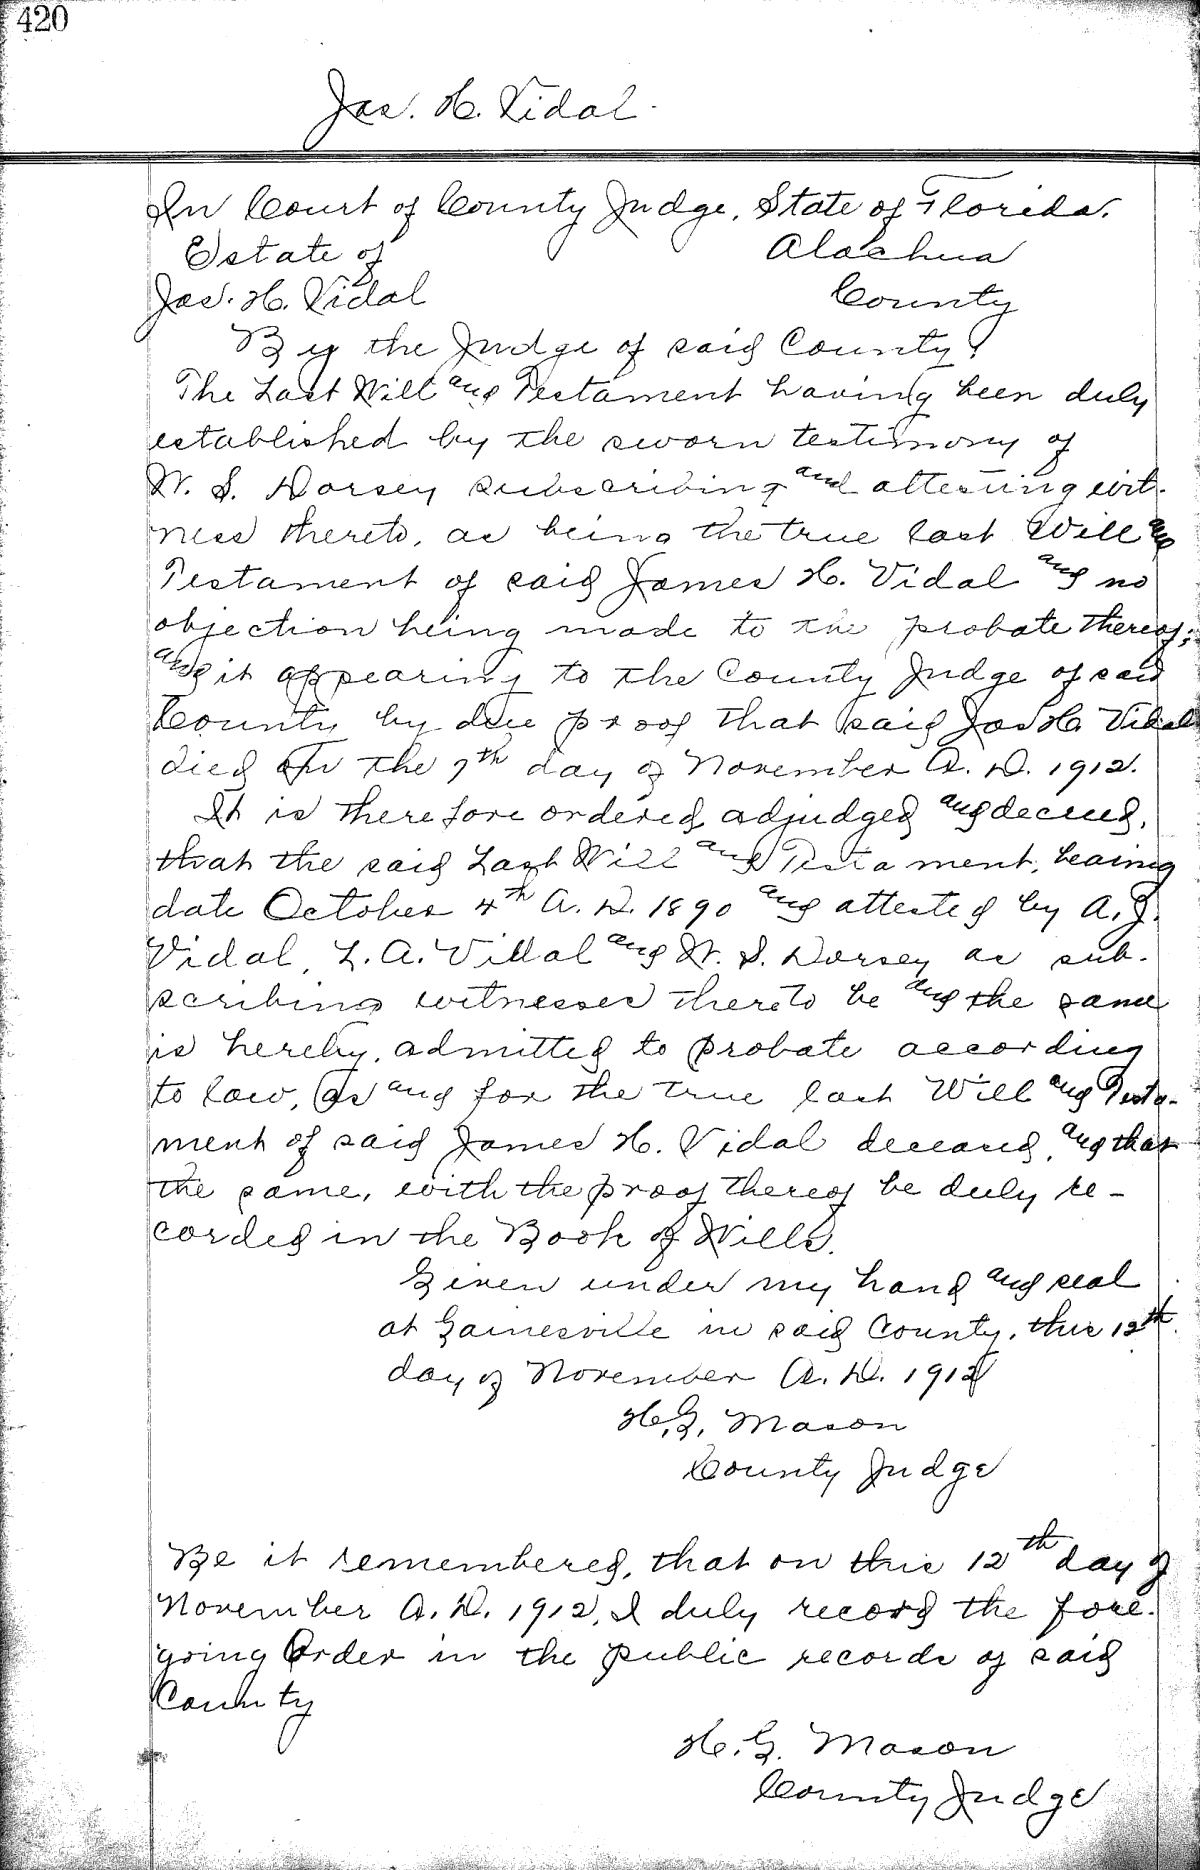 420
Jas. H. Vidal
In Court of County Judge, State of Florida.
Estate of Alachua
Jas. H. Vidal County
By the Judge of said County:
The Last Will and Testament having been duly
established by the sworn testimony of
W. S. Dorsey subscribing and attesting wit-
ness thereto, as being the true last Will and
Testament of said James H. Vidal and no
objection being made to the probate thereof;
and it appearing to the County Judge of said
County by due proof that said Jas H. Vidal
died on the 7th day of November A. D. 1912.
It is therefore ordered, adjudged and decreed,
that the said Last Will and Testament, bearing
date October 4th A. D. 1890 and attested by A. J.
Vidal, L. A. Vidal and W. S. Dorsey as sub-
scribing witnesses thereto be and the same
is hereby, admitted to probate according
to law, as and for the true last Will and Testa-
ment of said James H. Vidal deceased, and that
the same, with the proof thereof be duly re-
corded in the Book of Wills.
Given under my hand and seal
at Gainesville in said County, this 12th
day of November A. D. 1912
H. G. Mason
County Judge
Be it remembered, that on this 12th day of
November A. D. 1912, I duly record the fore-
going Order in the public records of said
County
H. G. Mason
County Judge